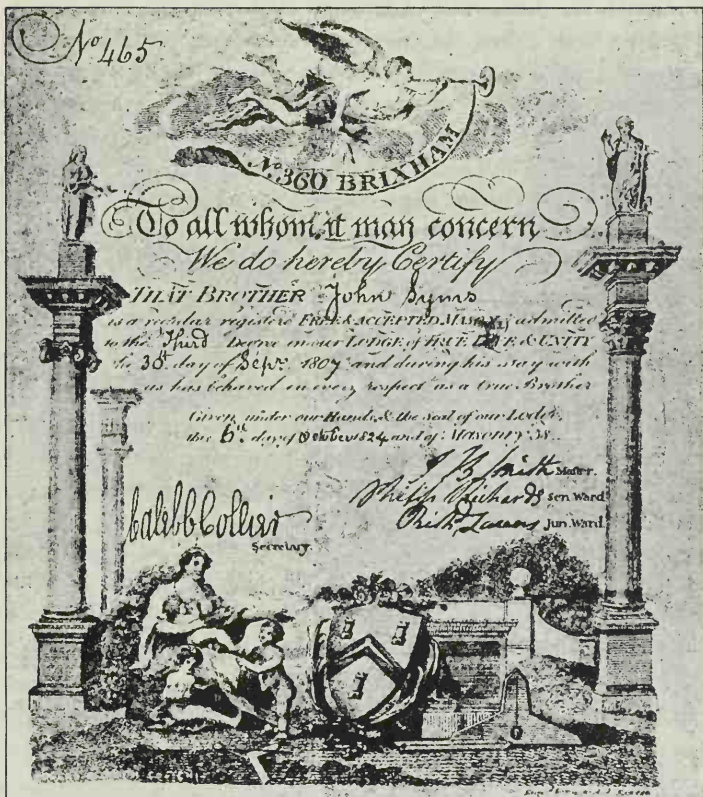 No 465
No. 360 BRIXHAM
To all whom it may concern
We do hereby Certify
THAT BROTHER John Syms
is a regular register'd FREE & ACCEPTED MASON admitted
to the Third Degree in our LODGE of TRUE LOVE & UNITY
the 30th day of Sepr. 1807 and during his stay with
us has behaved in every respect as a true Brother
Given under our Hands & the Seal of our Lodge
this 6th day of October 1824 and of Masonry 58
J B Smith Master.
Philip Richards Sen Ward
Jun. Ward
Caleb B Collier
Secretary.